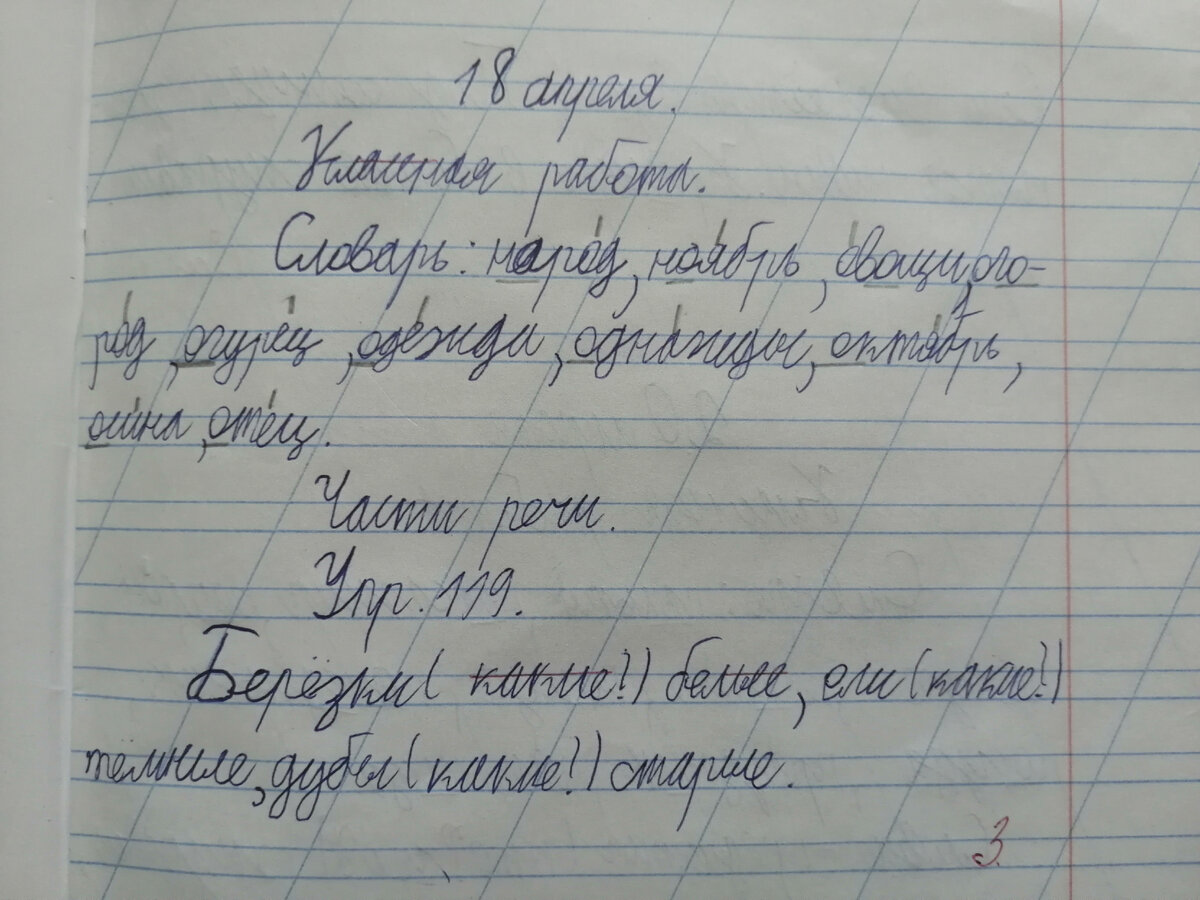 18 апреля.
Класная работа.
Словарь: народ, ноябрь, овощи, ого-
род, огурец, одежда, однажды, октябрь,
осина, отец.
Части речи.
Упр. 119.
Берёзки (какие?) белые, ели (какие?)
темные, дубы (какие?) старые.
3